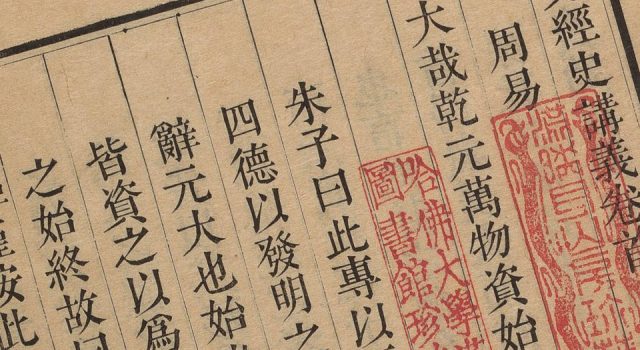 經史講義卷首
周易
大哉乾元萬物資始
哈佛大學
圖書館珍
朱子曰此專以
四德以發明之
辭元大也始
皆資之以爲
之始終故
按此